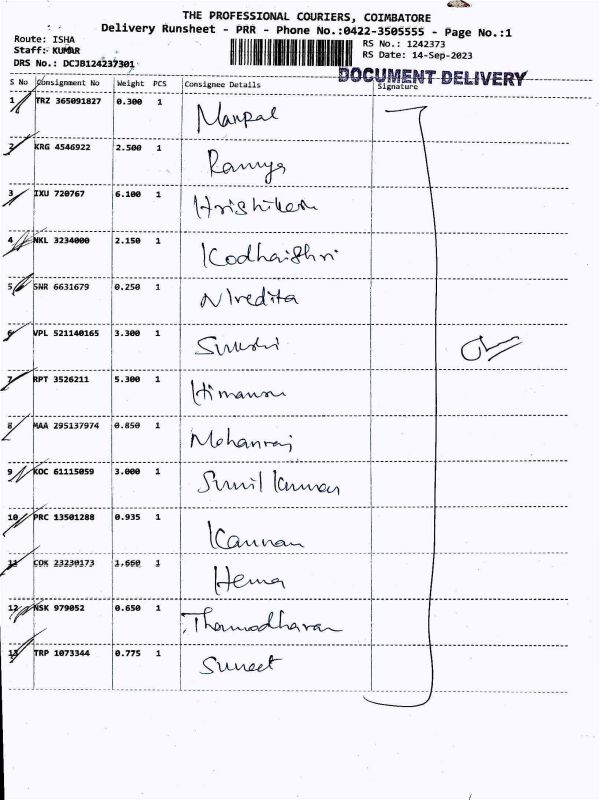 THE PROFESSIONAL COURIERS, COIMBATORE
Delivery Runsheet - PRR - Phone No.:0422-3505555 - Page No.:1
Route: ISHA
Staff: KUMAR
DRS No.: DCJB124237301
RS No.: 1242373
RS Date: 14-Sep-2023
DOCUMENT DELIVERY
S No Consignment No Weight PCS Consignee Details Signature
1 TRZ 365091827 0.300 1 Manpal
2 KRG 4546922 2.500 1 Ramya
3 IXU 720767 6.100 1 Hrishikesh
4 NKL 3234000 2.150 1 Kodhaishri
5 SNR 6631679 0.250 1 Niredita
6 VPL 521140165 3.300 1
7 RPT 3526211 5.300 1 Himansu
8 MAA 295137974 0.850 1 Mohanraj
9 KOC 61115059 3.000 1 Sunil Kumar
10 PRC 13501288 0.935 1 Kannan
11 COK 23230173 1.660 1 Hema
12 NSK 979052 0.650 1 Thamodharan
13 TRP 1073344 0.775 1 Suneet